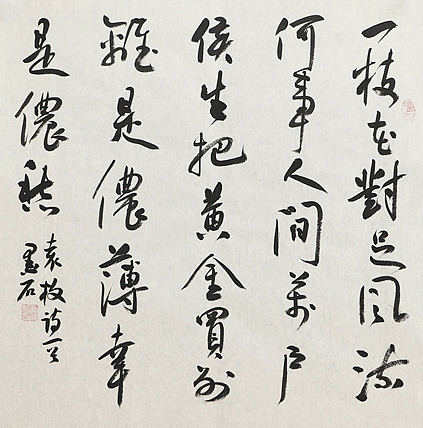 一枝花對足風流
何事人間萬戶
侯生把黃金買別
離是儂薄幸
是儂愁
袁枚詩
墨石